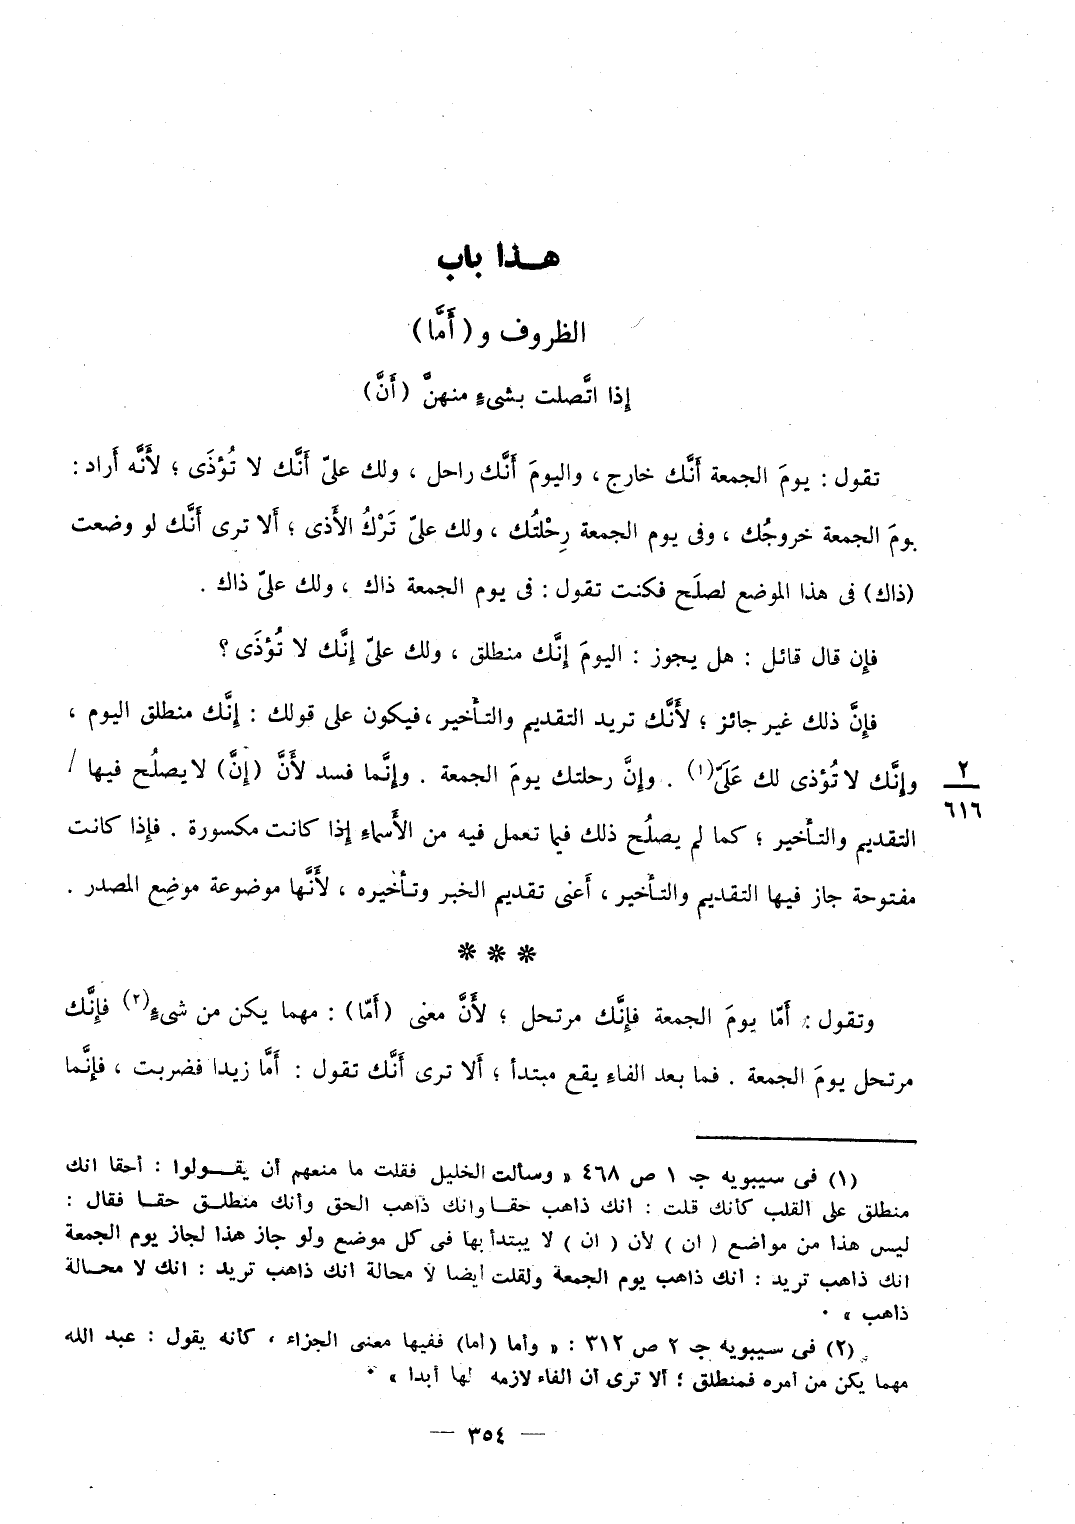 هـذا باب
الظروف و (أَمَّا)
إذا اتَّصلت بشىءٍ منهنَّ (أَنَّ)
تقول : يومَ الجمعة أَنَّك خارج ، واليومَ أَنَّك راحل ، ولك علىّ أَنَّك لا تُؤذَى ؛ لأَنَّه أَراد :
يومَ الجمعة خروجُك ، وفى يوم الجمعة رِحْلتُك ، ولك علىّ تَرْكُ الأَذى ؛ أَلا ترى أَنَّك لو وضعت
(ذاك) فى هذا الموضع لصلَح فكنت تقول : فى يوم الجمعة ذاك ، ولك علىّ ذاك .
فإِن قال قائل : هل يجوز : اليومَ إِنَّك منطلق ، ولك علىّ إِنَّك لا تُؤذَى ؟
فإِنَّ ذلك غير جائز ؛ لأَنَّك تريد التقديم والتأخير ، فيكون على قولك : إِنَّك منطلق اليوم ،
وإِنَّك لا تُؤذى لك عَلَىّ(١) . وإِنَّ رحلتك يومَ الجمعة . وإِنَّما فسد لأَنَّ (إِنَّ) لا يصلُح فيها /
٢
٦١٦
التقديم والتأخير ؛ كما لم يصلُح ذلك فيما تعمل فيه من الأَسماءِ إذا كانت مكسورة . فإذا كانت
مفتوحة جاز فيها التقديم والتأخير ، أَعنى تقديم الخبر وتأخيره ، لأَنَّها موضوعة موضِع المصدر .
❊ ❊ ❊
وتقول : أَمّا يومَ الجمعة فإِنَّك مرتحل ؛ لأَنَّ معنى (أَمّا) : مهما يكن من شىءٍ(٢) فإِنَّك
مرتحل يومَ الجمعة . فما بعد الفاء يقع مبتدأ ؛ أَلا ترى أَنَّك تقول : أَمَّا زيدا فضربت ، فإِنَّما
(١) فى سيبويه جـ ١ ص ٤٦٨ « وسألت الخليل فقلت ما منعهم أن يقـولوا : أحقا انك
منطلق على القلب كأنك قلت : انك ذاهب حقـا وانك ذاهب الحق وأنك منطلـق حقـا فقال :
ليس هذا من مواضع ( ان ) لأن ( ان ) لا يبتدأ بها فى كل موضع ولو جاز هذا لجاز يوم الجمعة
انك ذاهب تريد : انك ذاهب يوم الجمعة ولقلت أيضا لا محالة انك ذاهب تريد : انك لا محـالة
ذاهب » .
(٢) فى سيبويه جـ ٢ ص ٣١٢ : « وأما (أما) ففيها معنى الجزاء ، كأنه يقول : عبد الله
مهما يكن من أمره فمنطلق ؛ ألا ترى أن الفاء لازمه لها أبدا » .
— ٣٥٤ —